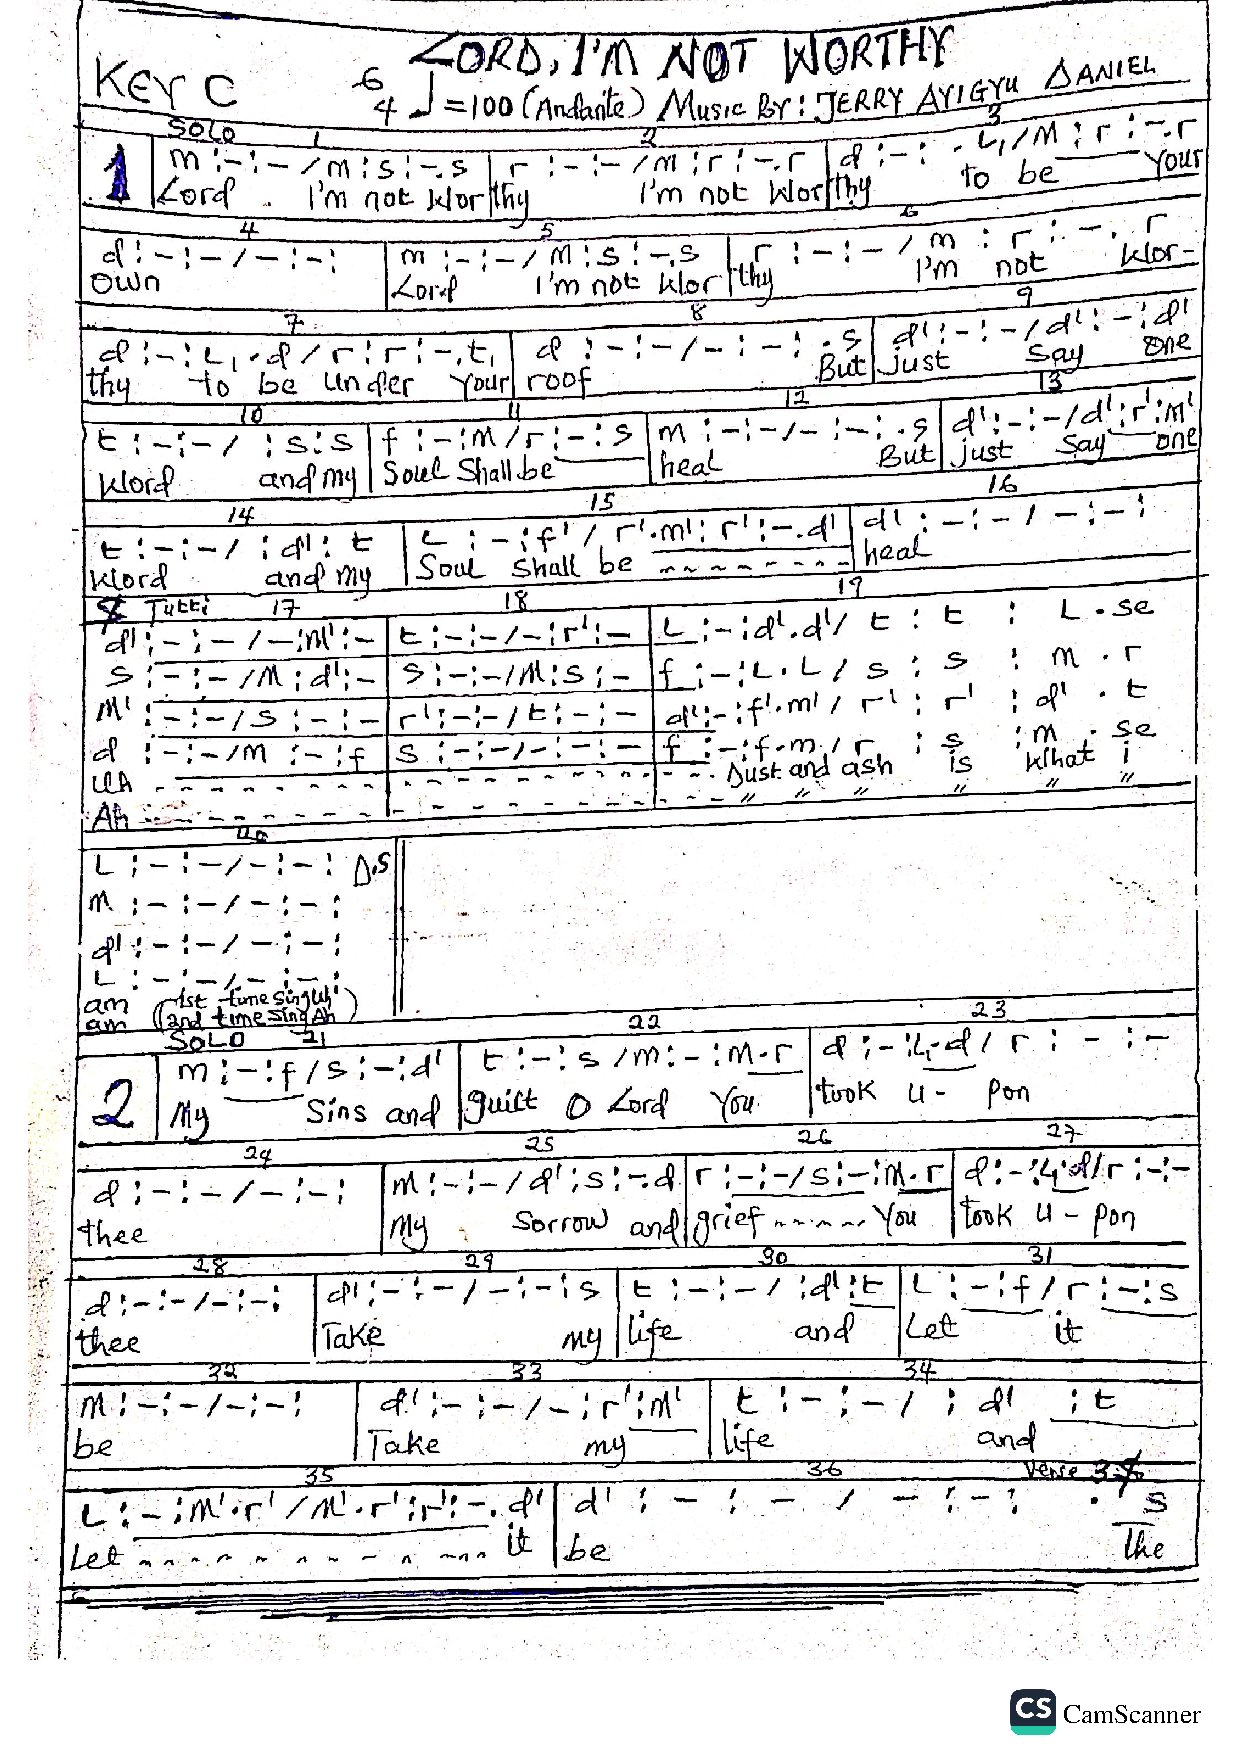 LORD, I'M NOT WORTHY
KEY C 6/4 ♩=100 (Andante) Music By: JERRY AYIGYU DANIEL
SOLO 1 2 3
1 m :- :- / m : s :-. s | r :- :- / m : r :-. r | d :- : . L₁ / m : r :-. r
Lord I'm not Wor thy I'm not Wor thy to be Your
4 5 6
d :- :- / - :- : | m :- :- / m : s :-. s | r :- :- / m : r :-. r
Own Lord I'm not Wor thy I'm not Wor-
7 8 9
d :- : L₁ . d / r : r :-. t₁ | d :- :- / - :- : . s | d' :- :- / d' :- : d'
thy to be under Your roof But just say one
10 11 12 13
t :- :- / : s : s | f :- : m / r :- : s | m :- :- / - :- : . s | d' :- :- / d' : r' : m'
Word and my Soul Shall be heal But just say one
14 15 16
t :- :- / : d' : t | L :- : f' / r' . m' : r' :-. d' | d' :- :- / - :- :
Word and my Soul Shall be heal
𝄋 Tutti 17 18 19
d' :- :- / - : m' :- | t :- :- / - : r' :- | L :- : d' . d' / t : t : L . se
s :- :- / m : d' :- | s :- :- / m : s :- | f :- : L . L / s : s : m . r
m' :- :- / s :- :- | r' :- :- / t :- :- | d' :- : f' . m' / r' : r' : d' . t
d :- :- / m :- : f | s :- :- / - :- :- | f :- : f . m / r : s : m . se
Uh - - - - - Dust and ash is What i
Ah - - - - - " " " " " "
20
L :- :- / - :- : D.S
m :- :- / - :- :
d' :- :- / - :- :
L :- :- / - :- :
am (1st time sing Uh
am 2nd time sing Ah)
SOLO 21 22 23
2 m :- : f / s :- : d' | t :- : s / m :- : m . r | d :- : L₁ . d / r :- :-
My Sins and guilt O Lord You took u - pon
24 25 26 27
d :- :- / - :- : | m :- :- / d' : s :-. d | r :- :- / s :- : m . r | d :- : L₁ . d / r :- :-
thee My Sorrow and grief - - - - - You took u - pon
28 29 30 31
d :- :- / - :- : | d' :- :- / - :- : s | t :- :- / : d' : t | L :- : f / r :- : s
thee Take my life and Let it
32 33 34
m :- :- / - :- : | d' :- :- / - : r' : m' | t :- :- / : d' : t
be Take my life and
35 36 Verse 3 𝄋
L :- : m' . r' / m' . r' : r' :-. d' | d' :- :- / - :- : . s
Let - - - - - it be The
CS CamScanner